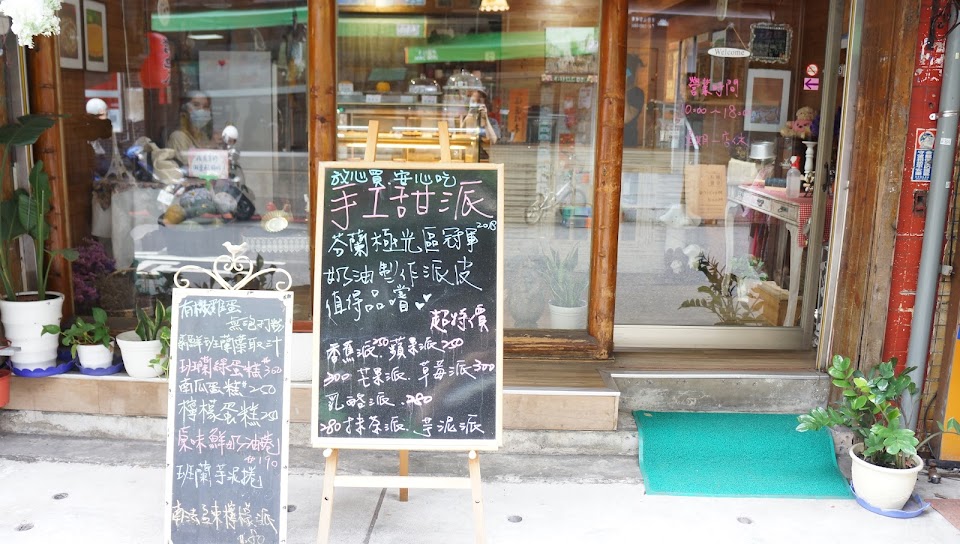 有機雞蛋
無泡打粉
新鮮班蘭葉取汁
班蘭綠蛋糕 300
南瓜蛋糕 250
檸檬蛋糕 250
原味鮮奶油捲
190
班蘭芋泥捲
南法冬檸檬派
放心買.安心吃
手工甜派
芬蘭極光區冠軍 2018
奶油製作派皮
值得品嘗
超特價
香蕉派 250 . 蘋果派 250
300 芒果派 . 草莓派 300
乳酪派 . 280
280 抹茶派 . 芋泥派
Welcome
營業時間
10:00~18:00